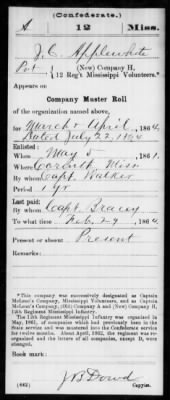 (Confederate.)
A 12 Miss.
J. C. Applewhite
Pvt (New) Company H,
12 Reg't Mississippi Volunteers.*
Appears on
Company Muster Roll
of the organization named above,
for March & April, 1864.
Rolls July 22, 1864
Enlisted:
When May 5, 1861.
Where Corinth Miss
By whom Capt. Walker
Period 1 yr
Last paid:
By whom Capt. Bracey
To what time Feb. 29, 1864.
Present or absent Present
Remarks:
*This company was successively designated as Captain
McLean's Company, Mississippi Volunteers, and as Captain
McLean's Company, (Old) Company A and (New) Company H,
12th Regiment Mississippi Infantry.
The 12th Regiment Mississippi Infantry was organized in
May, 1861, of companies which had previously been in the
State service and was mustered into the Confederate service
for twelve months. About April, 1862, the regiment was re-
organized and the letters of all companies, except D, were
changed.
Book mark:
(642) J B Dowd
Copyist.